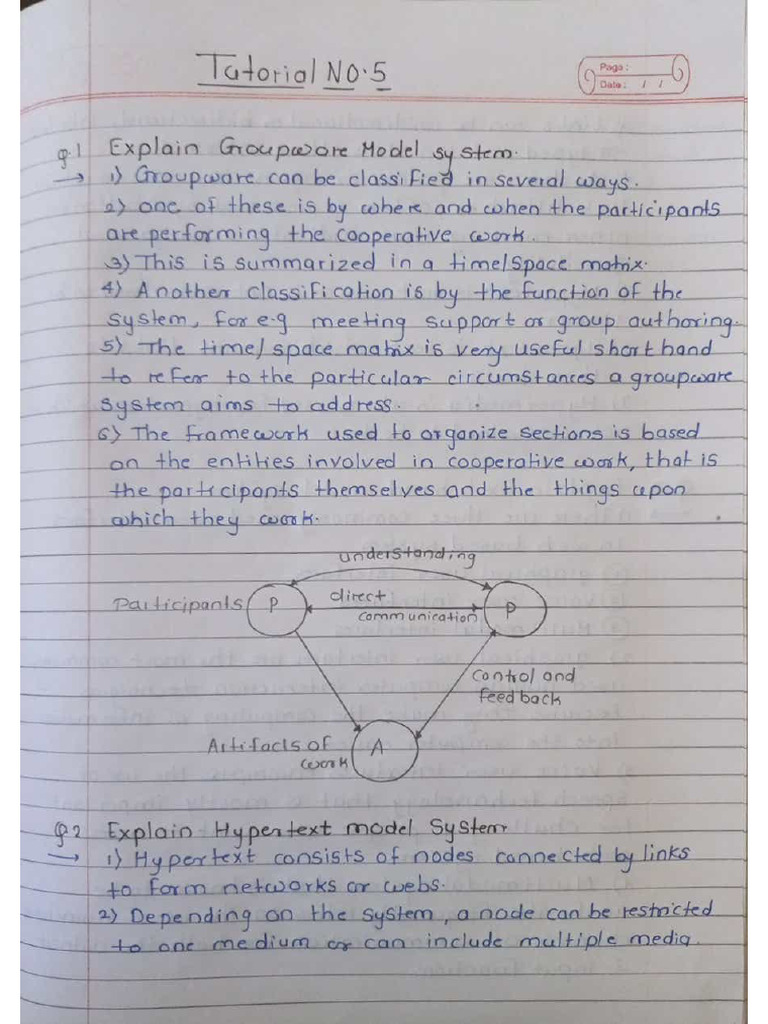 Tutorial NO.5
Page :
Date : / /
Q.1 Explain Groupware Model system.
→ 1) Groupware can be classified in several ways.
2) one of these is by where and when the participants
are performing the cooperative work.
3) This is summarized in a time/space matrix.
4) Another classification is by the function of the
system, for e.g meeting support or group authoring.
5) The time/space matrix is very useful short hand
to refer to the particular circumstances a groupware
system aims to address.
6) The framework used to organize sections is based
on the entities involved in cooperative work, that is
the participants themselves and the things upon
which they work.
understanding
Participants P direct P
communication
control and
feedback
Artifacts of A
work
Q.2 Explain Hypertext model System
→ 1) Hypertext consists of nodes connected by links
to form networks or webs.
2) Depending on the system, a node can be restricted
to one medium or can include multiple media.